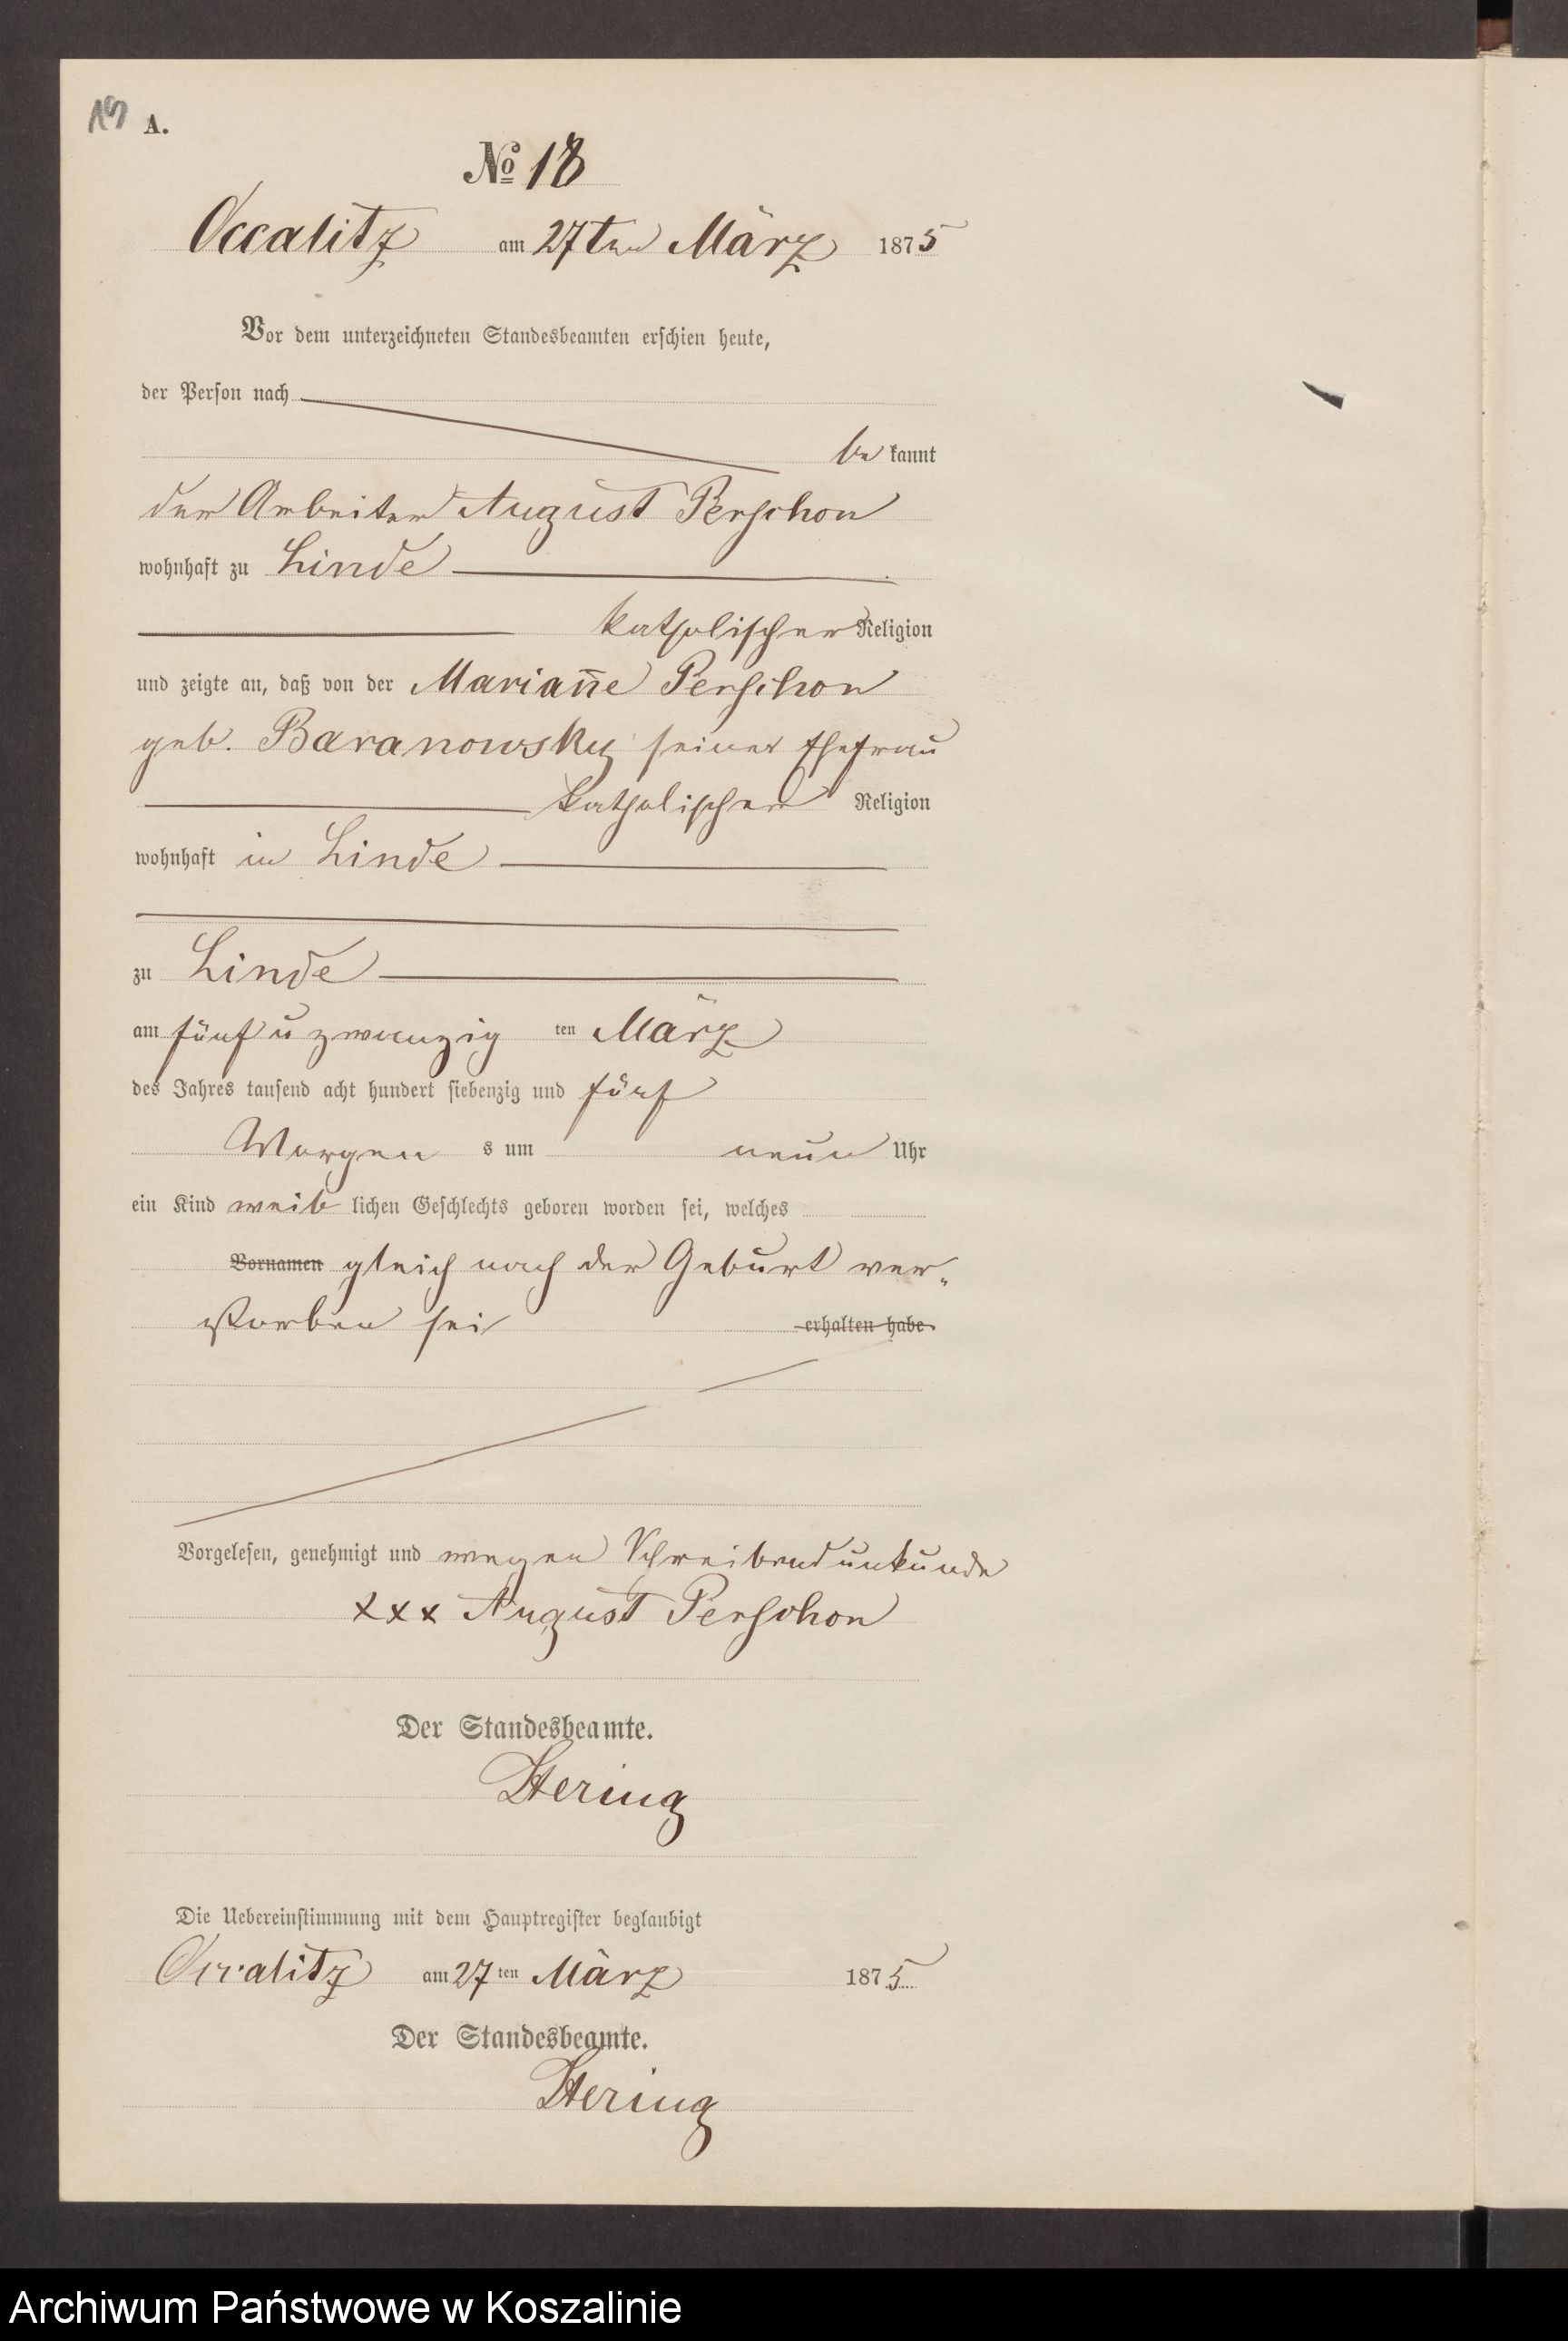 A.
No 18
Occalitz am 27ten März 1875
Vor dem unterzeichneten Standesbeamten erschien heute,
der Person nach
be kannt
der Arbeiter August Perschon
wohnhaft zu Linde
katholischer Religion
und zeigte an, daß von der Marian̄e Perschon
geb. Baranowsky seiner Ehefrau
katholischer Religion
wohnhaft in Linde
zu Linde
am fünf u zwanzig ten März
des Jahres tausend acht hundert siebenzig und fünf
Morgen s um neun Uhr
ein Kind weib lichen Geschlechts geboren worden sei, welches
Vornamen gleich nach der Geburt ver-
storben sei erhalten habe.
Vorgelesen, genehmigt und wegen Schreibensunkunde
xxx August Perschon
Der Standesbeamte.
Hering
Die Uebereinstimmung mit dem Hauptregister beglaubigt
Occalitz am 27 ten März 1875
Der Standesbeamte.
Hering
Archiwum Państwowe w Koszalinie